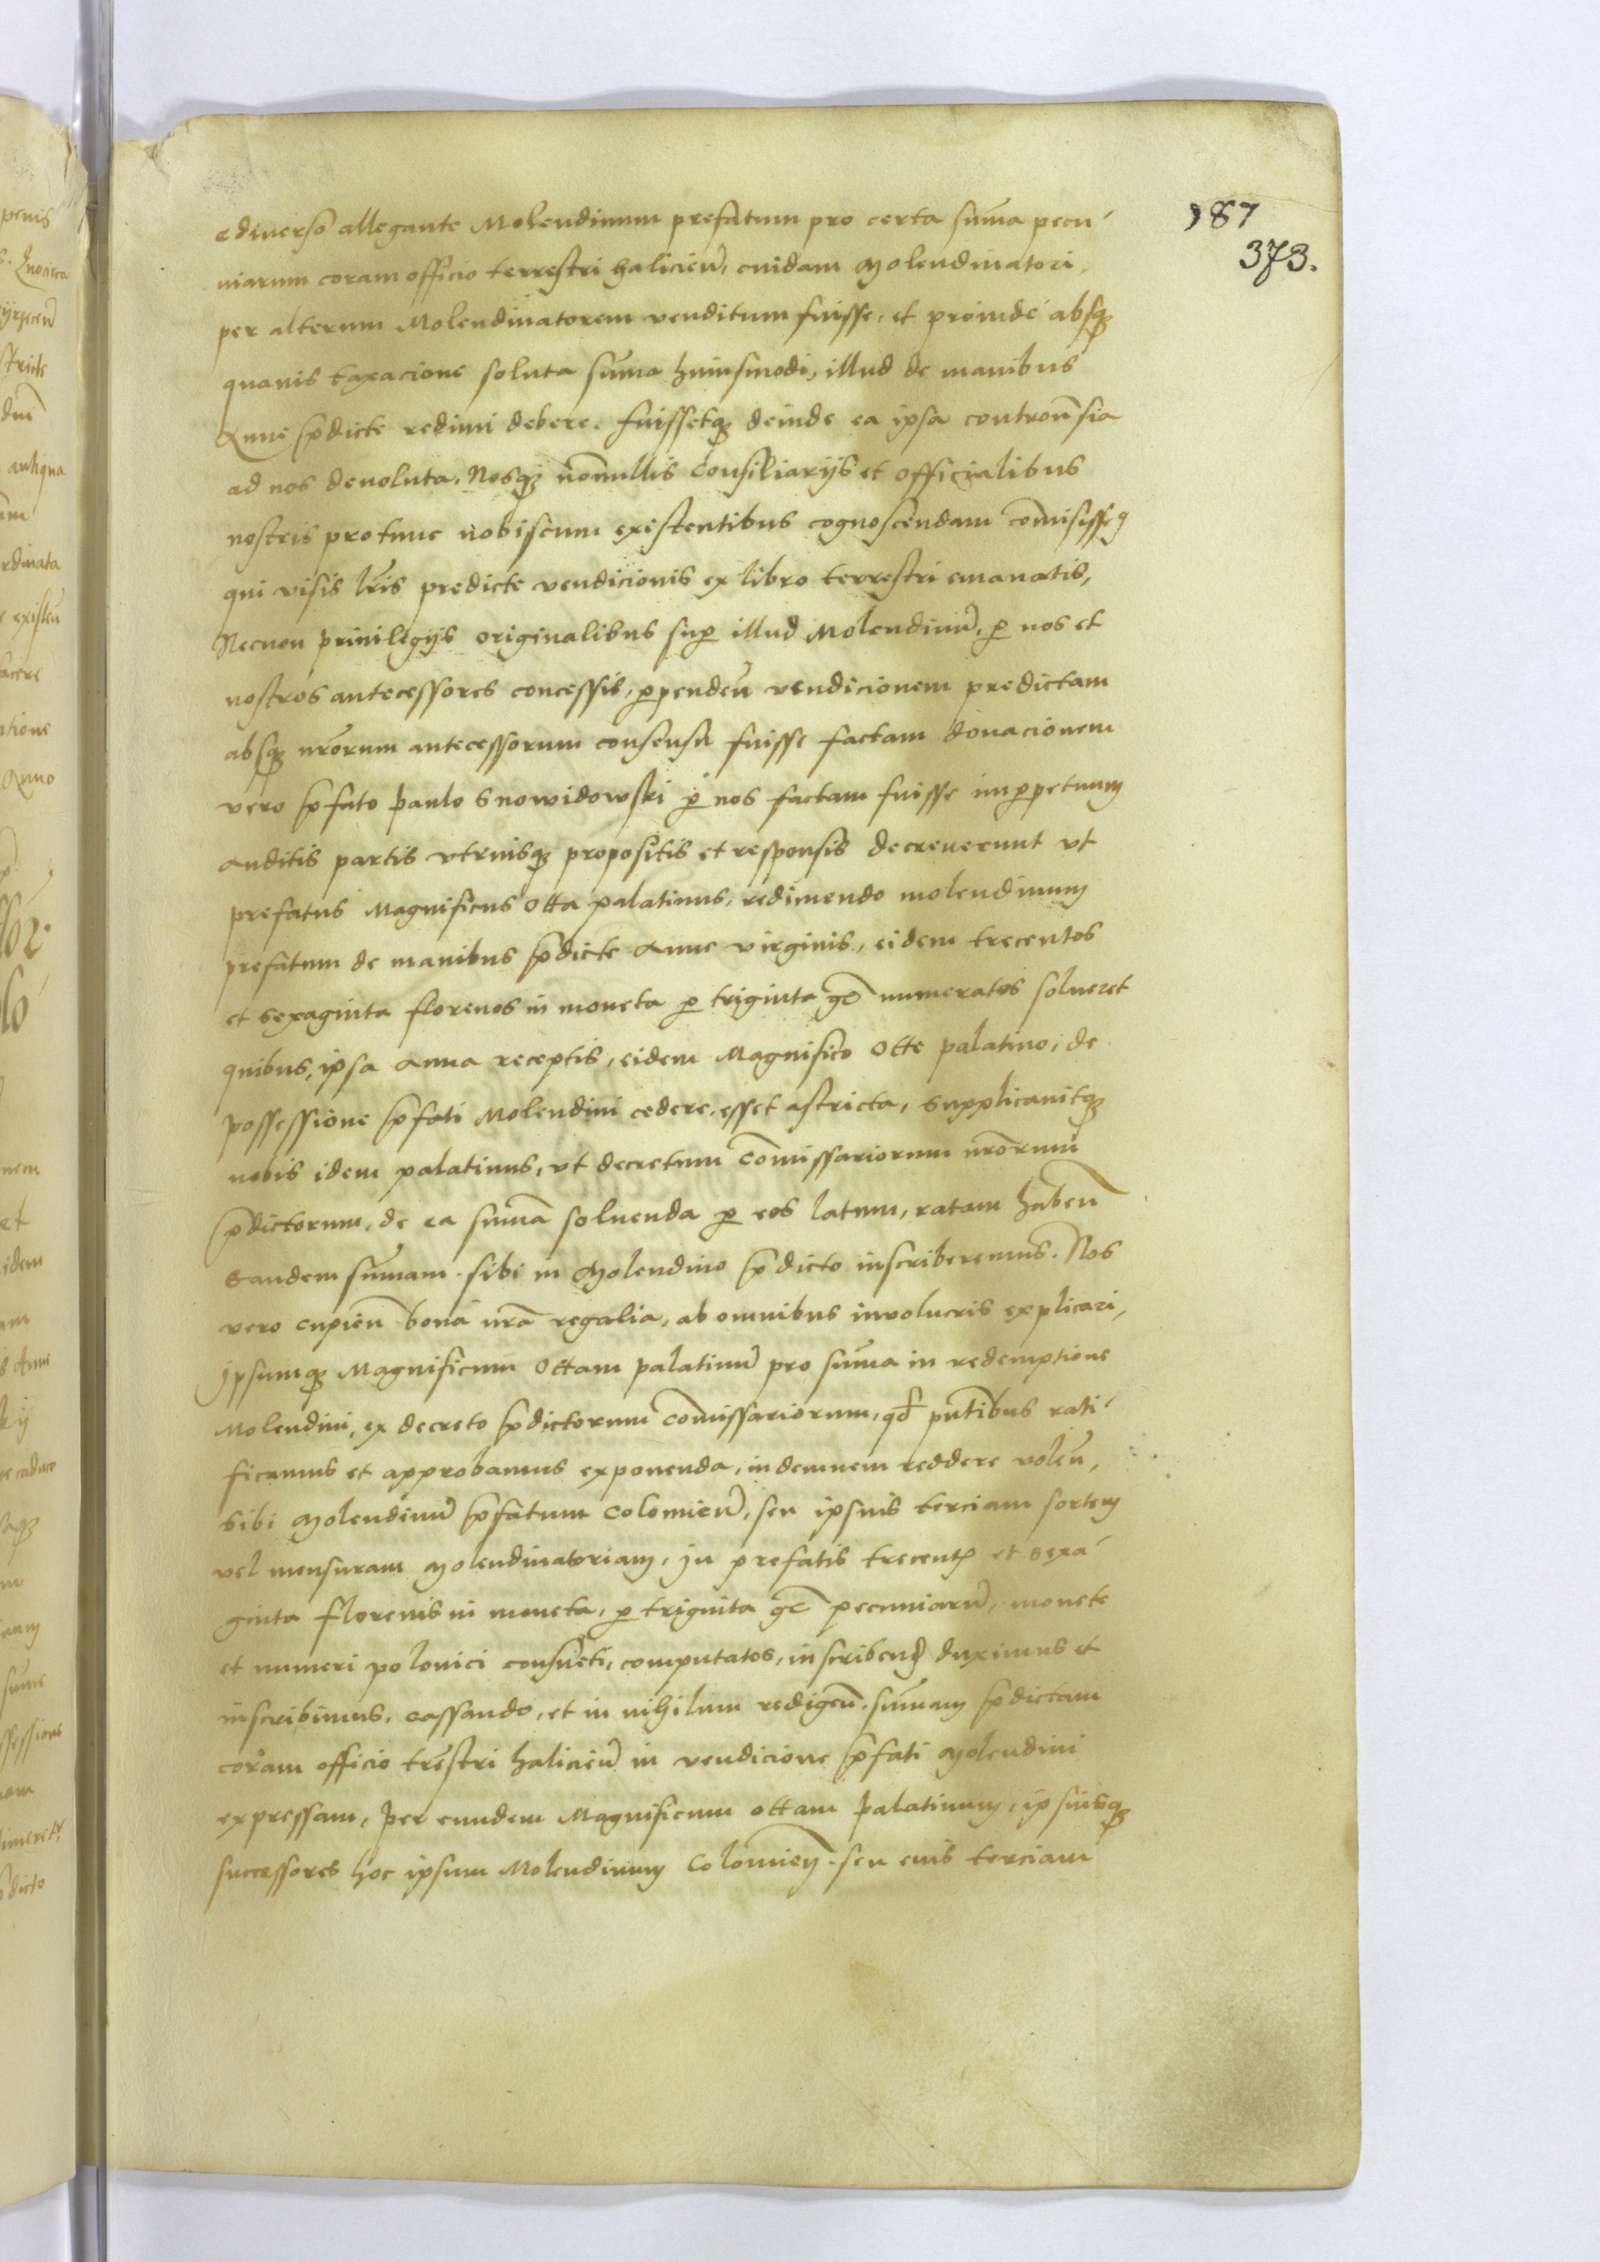 187
373.
e diverso allegante Molendinum prefatum pro certa suma pecu
niarum coram officio terrestri haliciens̃, cuidam Molendinatori
per alterum Molendinatorem venditum fuisse, et proinde absq̃
quavis taxacione soluta suma huiusmodi, illud de manibus
Anne p̃dicte redimi debere. fuissetq̃ deinde ea ipsa controũsia
ad nos devoluta, Nosq̃ nõnullis Consiliarijs et officialibus
nostris protunc nobiscum existentibus cognoscendam cõmisisse
qui visis l̃ris predicte vendicionis ex libro terrestri emanatis,
Necnon privilegijs originalibus sup̃ illud Molendinũ, p̃ nos et
nostros antecessores concessis, p̃penden̄ vendicionem predictam
absq̃ nr̃orum antecessorum consensu fuisse factam donacionem
vero p̃fato paulo Snowidowski p̃ nos factam fuisse imp̃petuum
auditis partis utriusq̃ propositis et responsis decreverunt ut
prefatus Magnificus Otta palatinus, redimendo molendinum
prefatum de manibus p̃dicte Anne virginis, eidem trecentos
et sexaginta florenos in moneta p̃ triginta gr̃ numeratos solveret
quibus, ipsa Anna receptis, eidem Magnifico Otte palatino, de
possessione p̃fati Molendini cedere, esset astricta, Supplicavitq̃
nobis idem palatinus, ut decretum Cõmissariorum nr̃orum
p̃dictorum, de ea sumã solvenda p̃ eos latum, ratam haben̄
Eandem sum̃am sibi in Molendino p̃dicto inscriberemus. Nos
vero cupien̄ bona nr̃a regalia, ab omnibus involucris explicari,
Ipsumq̃ Magnificum Ottam palatinũ pro sum̃a in redemptione
Molendini, ex decreto p̃dictorum Cõmissariorum, qd̃ pñtibus rati
ficamus et approbamus exponenda, indemnem reddere volen̄,
sibi Molendinũ p̃fatum Colomien̄, seu ipsius terciam sortem
vel mensuram Molendinatoriam, In prefatis trecentis et sexa
ginta florenis in moneta, p̃ triginta gr̃ pecuniarũ, monete
et numeri polonici consueti, computatos, inscribend̃ duximus et
inscribimus, cassando, et in nihilum redigen̄ sum̃am p̃dictam
coram officio tr̃estri halicien̄ in vendicione p̃fati Molendini
expressam, Per eundem Magnificum ottam palatinum, ipsiusq̃
successores hoc ipsum Molendinum Colomien̄ seu eius terciam